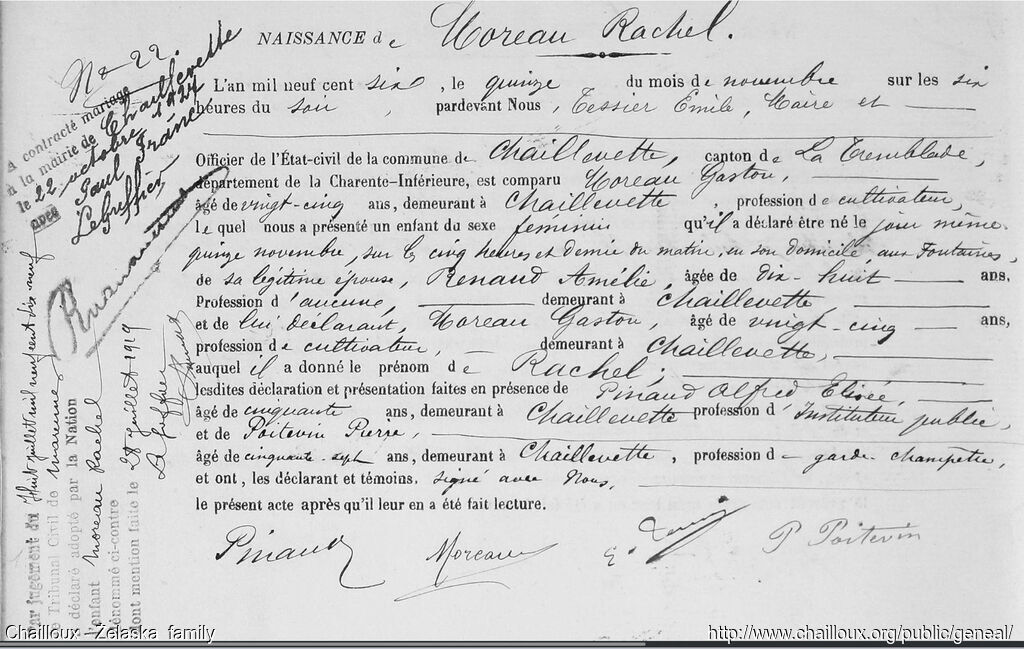 NAISSANCE de Moreau Rachel.
No 22
L'an mil neuf cent six, le quinze du mois de novembre sur les six
heures du soir, pardevant Nous, Tessier Emile, Maire et
Officier de l'État-civil de la commune de Chaillevette, canton de La Tremblade,
département de la Charente-Inférieure, est comparu Moreau Gaston,
âgé de vingt-cinq ans, demeurant à Chaillevette, profession de cultivateur,
lequel nous a présenté un enfant du sexe féminin qu'il a déclaré être né le jour même
quinze novembre, sur les cinq heures et demie du matin, en son domicile aux Fontaines,
de sa légitime épouse, Renaud Amélie, âgée de dix-huit ans,
Profession d'aucune, demeurant à Chaillevette,
et de lui déclarant, Moreau Gaston, âgé de vingt-cinq ans,
profession de cultivateur, demeurant à Chaillevette,
auquel il a donné le prénom de Rachel;
lesdites déclaration et présentation faites en présence de Pinaud Alfred Elisée,
âgé de cinquante ans, demeurant à Chaillevette profession d'Instituteur public,
et de Poitevin Pierre,
âgé de cinquante-sept ans, demeurant à Chaillevette, profession de garde champêtre,
et ont, les déclarant et témoins, signé avec Nous,
le présent acte après qu'il leur en a été fait lecture.
Pinaud Moreau P Poitevin
a contracté mariage
à la mairie de Chaillevette
le 22 octobre 1927
avec Paul Franc
Par jugement du Huit juillet mil neuf cent dix neuf
le Tribunal Civil de Marennes
a déclaré adopté par la Nation
l'enfant Moreau Rachel
dénommé ci-contre
dont mention faite le 28 juillet 1919
Le greffier
Chailloux - Żelaska family
http://www.chailloux.org/public/geneal/